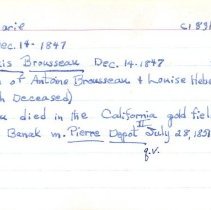 arie c1831
Dec. 14 - 1847
is Brousseau Dec. 14 - 1847
of Antoine Brousseau & Louise Heber
h Deceased)
u died in the California gold fiel
Banak m. Pierre Depot July 28, 185
II
q.v.